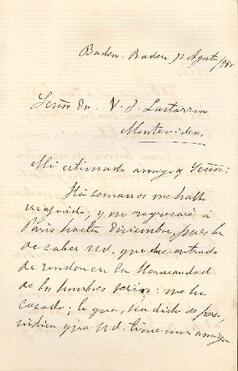 Baden-Baden 12 Agosto/80
Señor Dn. V. J. Lastarria
Montevideo.
Mi estimado amigo y Señor:
Há semanas me hallo
viajando, y no regresaré a
Paris hasta Diciembre, pues ha
de saber Ud. que he entrado
de rondon en la Hermandad
de los hombres: me he
casado; lo que, sin dida de
que Ud. tiene una amiga